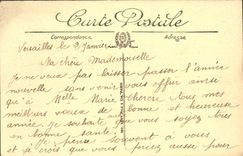 Carte Postale
Correspondance Adresse
Versailles le 3 Janvier
Ma chère Mademoiselle
Je ne veux pas laisser passer l'année
nouvelle sans venir vous offrir ainsi
qu'à Melle Marie Tous mes
meilleurs vœux de bonne et heureuse
année. Je souhaite que vous soyez
en bonne santé.
Je pense souvent à vous
et je crois que vous priez aussi pour